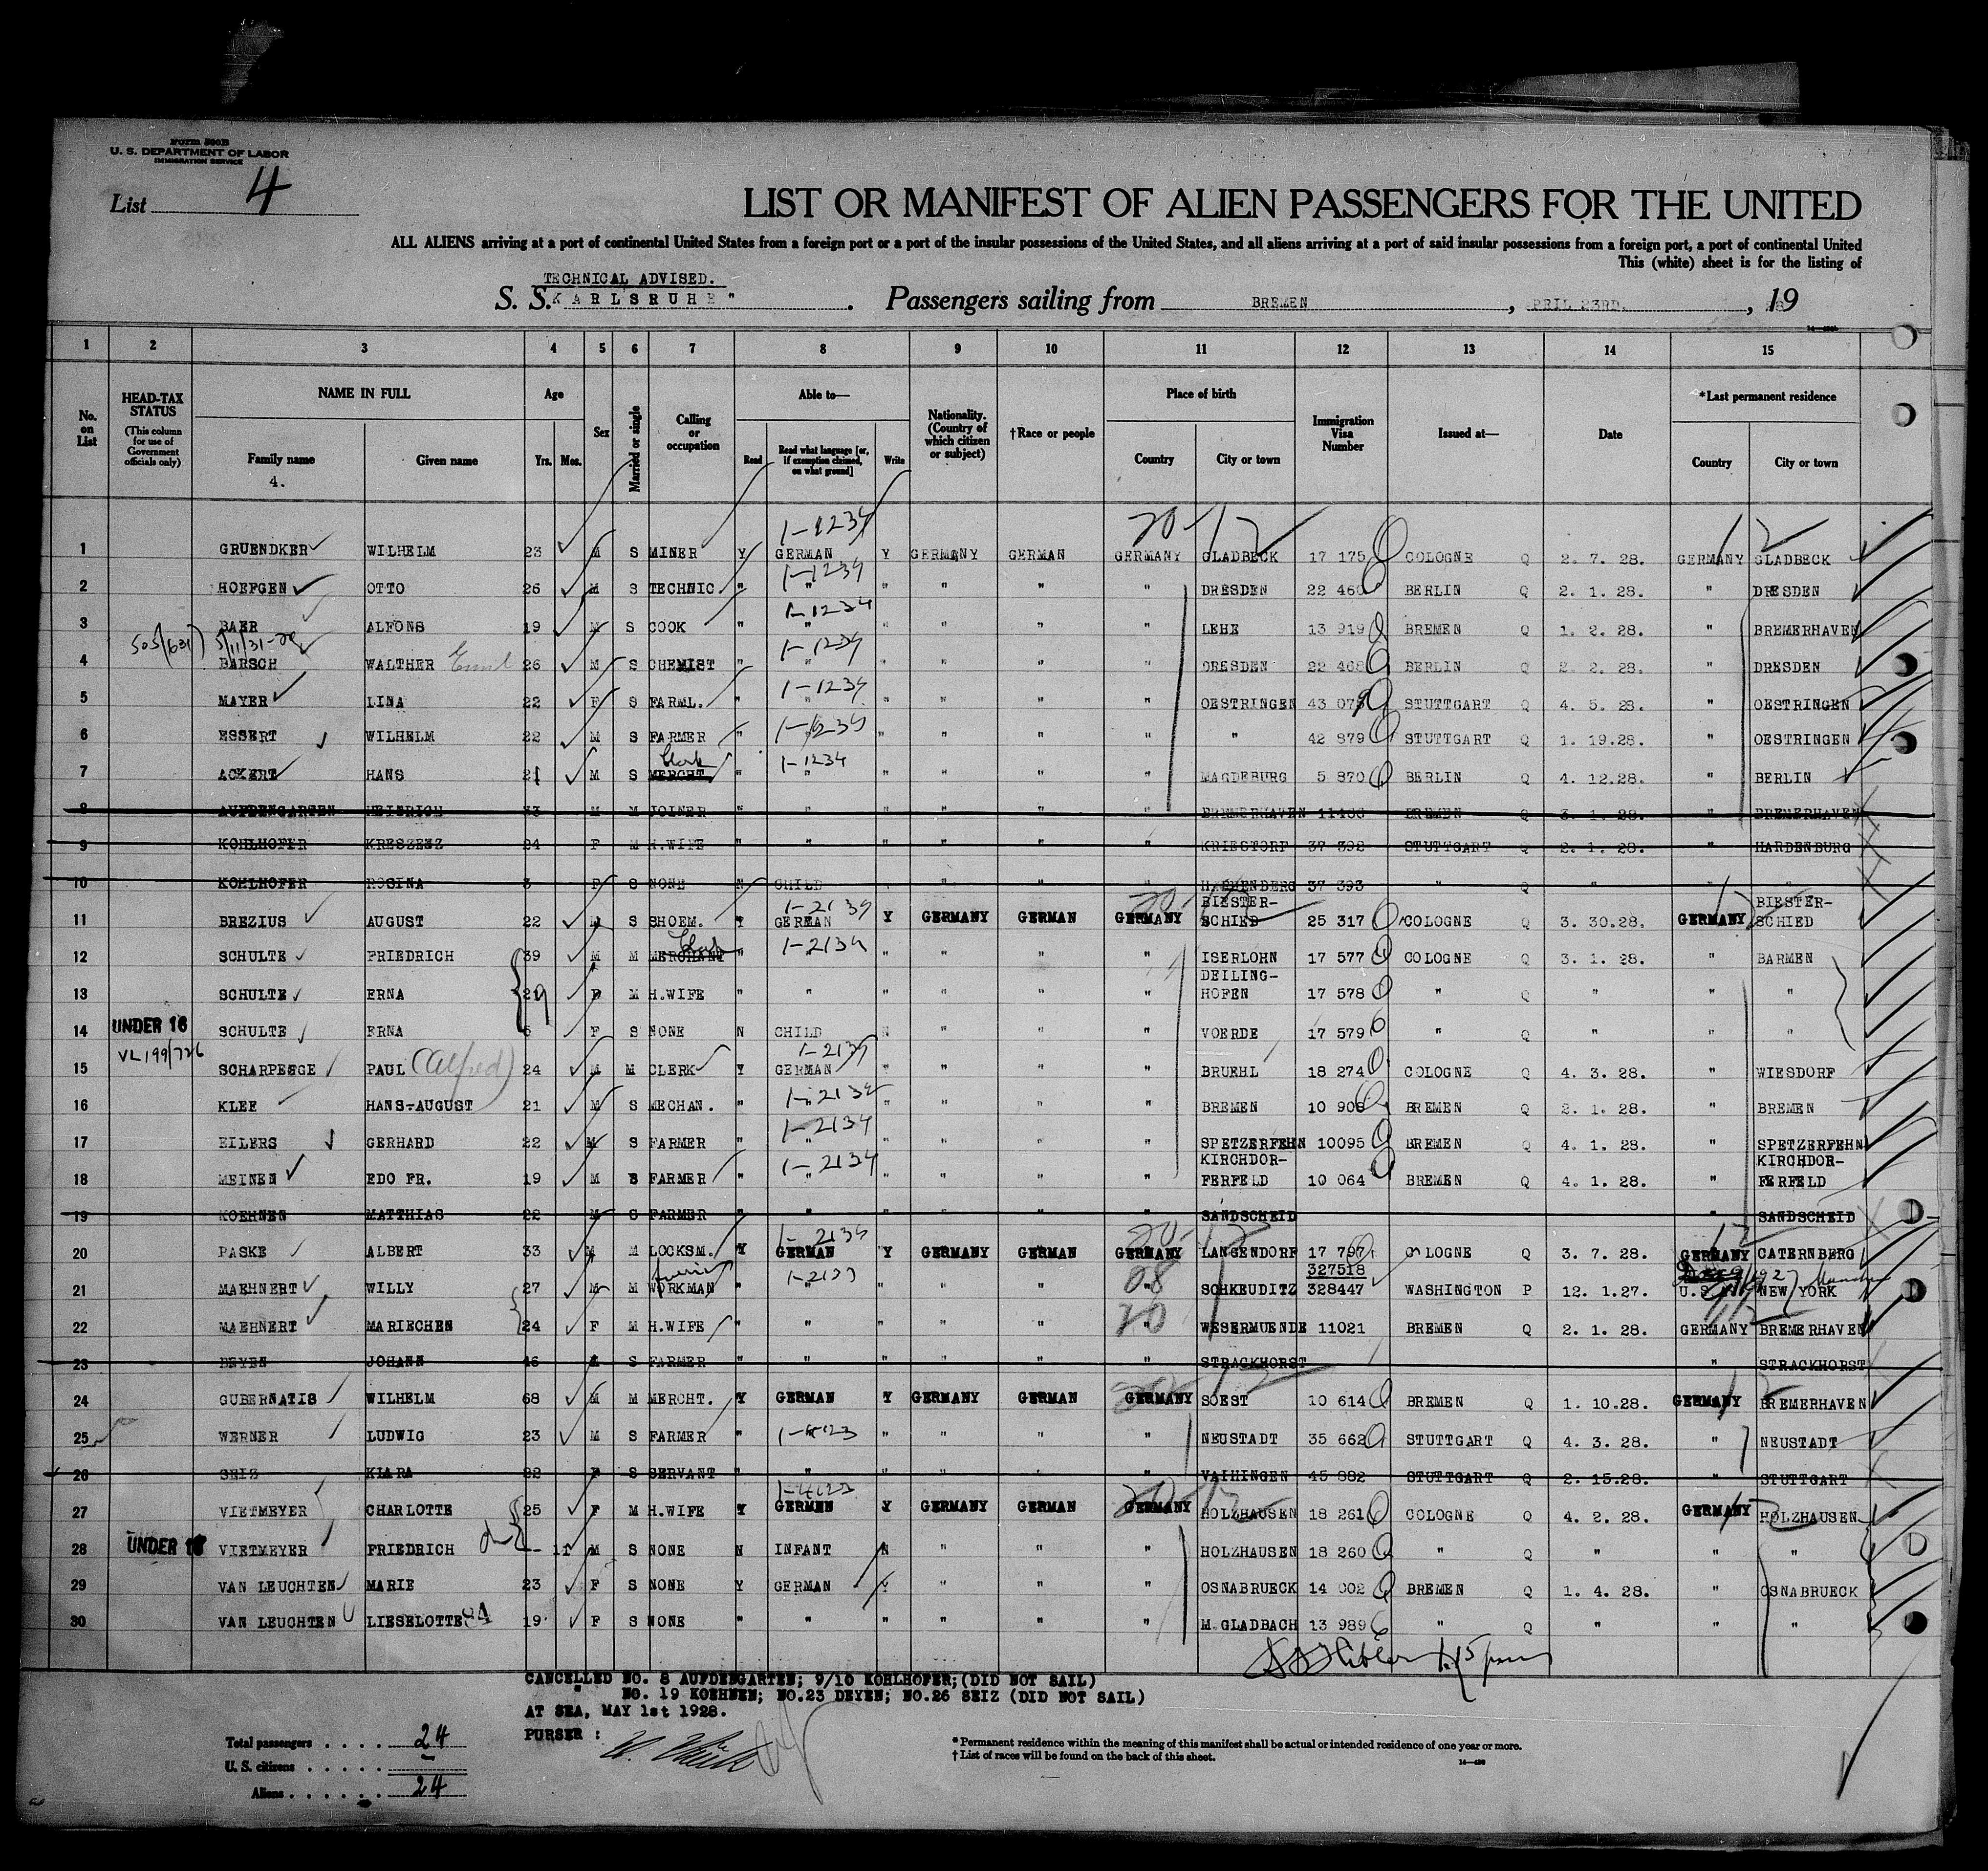 Form 500B
U. S. DEPARTMENT OF LABOR
IMMIGRATION SERVICE
List 4
LIST OR MANIFEST OF ALIEN PASSENGERS FOR THE UNITED
ALL ALIENS arriving at a port of continental United States from a foreign port or a port of the insular possessions of the United States, and all aliens arriving at a port of said insular possessions from a foreign port, a port of continental United
This (white) sheet is for the listing of
TECHNICAL ADVISED.
S. S. KARLSRUHE" . Passengers sailing from BREMEN , PRIL 23RD. , 19
1 2 3 4 5 6 7 8 9 10 11 12 13 14 15
No. on List
HEAD-TAX STATUS (This column for use of Government officials only)
NAME IN FULL
Family name
4.
Given name
Age
Yrs. Mos.
Sex
Married or single
Calling or occupation
Able to—
Read
Read what language [or, if exemption claimed, on what ground]
Write
Nationality. (Country of which citizen or subject)
†Race or people
Place of birth
Country
City or town
Immigration Visa Number
Issued at—
Date
*Last permanent residence
Country
City or town
20 12 12
1-1234
1 GRUENDKER WILHELM 23 M S MINER Y GERMAN Y GERMANY GERMAN GERMANY GLADBECK 17 175 COLOGNE Q 2. 7. 28. GERMANY GLADBECK
1-1234
2 HOEFGEN OTTO 26 M S TECHNIC. " " " " " " DRESDEN 22 460 BERLIN Q 2. 1. 28. " DRESDEN
1-1234
3 BAER ALFONS 19 M S COOK " " " " " " LEHE 13 919 BREMEN Q 1. 2. 28. " BREMERHAVEN
1-1234
4 BARSCH WALTHER Emil 26 M S CHEMIST " " " " " " DRESDEN 22 468 BERLIN Q 2. 2. 28. " DRESDEN
1-1234
5 MAYER LINA 22 F S FARML. " " " " " " OESTRINGEN 43 075 STUTTGART Q 4. 5. 28. " OESTRINGEN
6 ESSERT WILHELM 22 M S FARMER " " " " " " " 42 879 STUTTGART Q 1. 19.28. " OESTRINGEN
Clerk 1-1234
7 ACKERT HANS 21 M S MERCHT. " " " " " MAGDEBURG 5 870 BERLIN Q 4. 12.28. " BERLIN
8 AUFDENGARTEN HEINRICH 33 M M JOINER " " " " " " BREMERHAVEN BREMEN Q 3. 1. 28. " BREMERHAVEN
9 KOHLHOFER KRESZENZ 24 F M H.WIFE " " " " " " KRIESTORF 37 392 STUTTGART Q 2. 1. 28. " HARDENBURG
10 KOHLHOFER ROSINA 3 F S NONE N CHILD " " " " 37 393 " Q " " "
1-2134 BIESTER- BIESTER-
11 BREZIUS AUGUST 22 M S SHOEM. Y GERMAN Y GERMANY GERMAN GERMANY SCHIED 25 317 COLOGNE Q 3. 30.28. GERMANY SCHIED
Clerk 1-2134
12 SCHULTE FRIEDRICH 39 M M MERCHANT " " " " " " ISERLOHN 17 577 COLOGNE Q 3. 1. 28. " BARMEN
DEILING-
13 SCHULTE ERNA 29 F M H.WIFE " " " " " " HOFEN 17 578 " Q " " "
UNDER 16
14 SCHULTE ERNA 5 F S NONE N CHILD N " " " VOERDE 17 579 " Q " " "
VL 199/726 1-2134
15 SCHARPEGGE PAUL (Alfred) 24 M M CLERK Y GERMAN " " " " BRUEHL 18 274 COLOGNE Q 4. 3. 28. " WIESDORF
1-2134
16 KLEE HANS-AUGUST 21 M S MECHAN. " " " " " " BREMEN 10 908 BREMEN Q 2. 1. 28. " BREMEN
1-2134
17 EILERS GERHARD 22 M S FARMER " " " " " " SPETZERFEHN 10095 BREMEN Q 4. 1. 28. " SPETZERFEHN
1-2134 KIRCHDOR- KIRCHDOR-
18 MEINEN EDO FR. 19 M S FARMER " " " " " " FERFELD 10 064 BREMEN Q 4. 1. 28. " FERFELD
19 KOEHNEN MATTHIAS 22 M S FARMER " " " " " " SANDSCHEID " SANDSCHEID
1-2134
20 PASKE ALBERT 33 M M LOCKSM. Y GERMAN Y GERMANY GERMAN GERMANY LANGENDORF 17 797 COLOGNE Q 3. 7. 28. GERMANY CATERNBERG
327518
21 MAEHNERT WILLY 27 M M WORKMAN " " " " " 08 SCHKEUDITZ 328447 WASHINGTON P 12. 1.27. U.S. NEW YORK
22 MAEHNERT MARIECHEN 24 F M H.WIFE " " " " " 20 WESERMUENDE 11021 BREMEN Q 2. 1. 28. GERMANY BREMERHAVEN
23 DEYEN JOHANN 46 S FARMER " " " " " " STRACKHORST " STRACKHORST
24 GUBERNATIS WILHELM 68 M M MERCHT. Y GERMAN Y GERMANY GERMAN GERMANY SOEST 10 614 BREMEN Q 1. 10.28. GERMANY BREMERHAVEN
25 WERNER LUDWIG 23 M S FARMER " " " " " NEUSTADT 35 662 STUTTGART Q 4. 3. 28. " NEUSTADT
26 SEIZ KLARA 22 F S SERVANT " " " " " " VAIHINGEN 45 882 STUTTGART Q 2. 15.28. " STUTTGART
27 VIETMEYER CHARLOTTE 25 F M H.WIFE Y GERMEN Y GERMANY GERMAN GERMANY HOLZHAUSEN 18 261 COLOGNE Q 4. 2. 28. GERMANY HOLZHAUSEN
UNDER 16
28 VIETMEYER FRIEDRICH - 11 M S NONE N INFANT N " " " HOLZHAUSEN 18 260 " Q " " "
29 VAN LEUCHTEN MARIE 23 F S NONE Y GERMAN Y " " " OSNABRUECK 14 002 BREMEN Q 1. 4. 28. " OSNABRUECK
30 VAN LEUCHTEN LIESELOTTE 19 F S NONE " " " " " " M.GLADBACH 13 989 " Q " " "
CANCELLED NO. 8 AUFDENGARTEN; 9/10 KOHLHOFER;(DID NOT SAIL)
" NO. 19 KOEHNEN; NO.23 DEYEN; NO.26 SEIZ (DID NOT SAIL)
AT SEA, MAY 1st 1928.
PURSER :
Total passengers . . . . 24
U. S. citizens . . . . . –
Aliens . . . . . . 24
* Permanent residence within the meaning of this manifest shall be actual or intended residence of one year or more.
† List of races will be found on the back of this sheet.